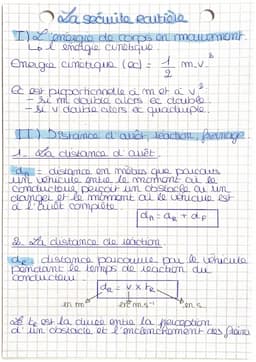 La sécurité routière
I) L'énergie de corps en mouvement
↳ l'énergie cinétique
Energie cinétique (Ec) = 1/2 m.v²
Ec est proportionnelle à m et à v²
- Si m double alors Ec double
- Si v double alors Ec quadruple.
II) Distance d'arrêt, réaction, freinage
1. La distance d'arrêt
dA = distance en mètres que parcours
un véhicule entre le moment où le
conducteur perçoit un obstacle ou un
danger et le moment où le véhicule est
à l'arrêt complète.
dA = dR + dF
2. La distance de réaction.
dR = distance parcourue par le véhicule
pendant le temps de réaction du
conducteur.
dR = v × tR
en m en m.s⁻¹ en s
Le tR est la durée entre la perception
d'un obstacle et l'enclenchement des freins